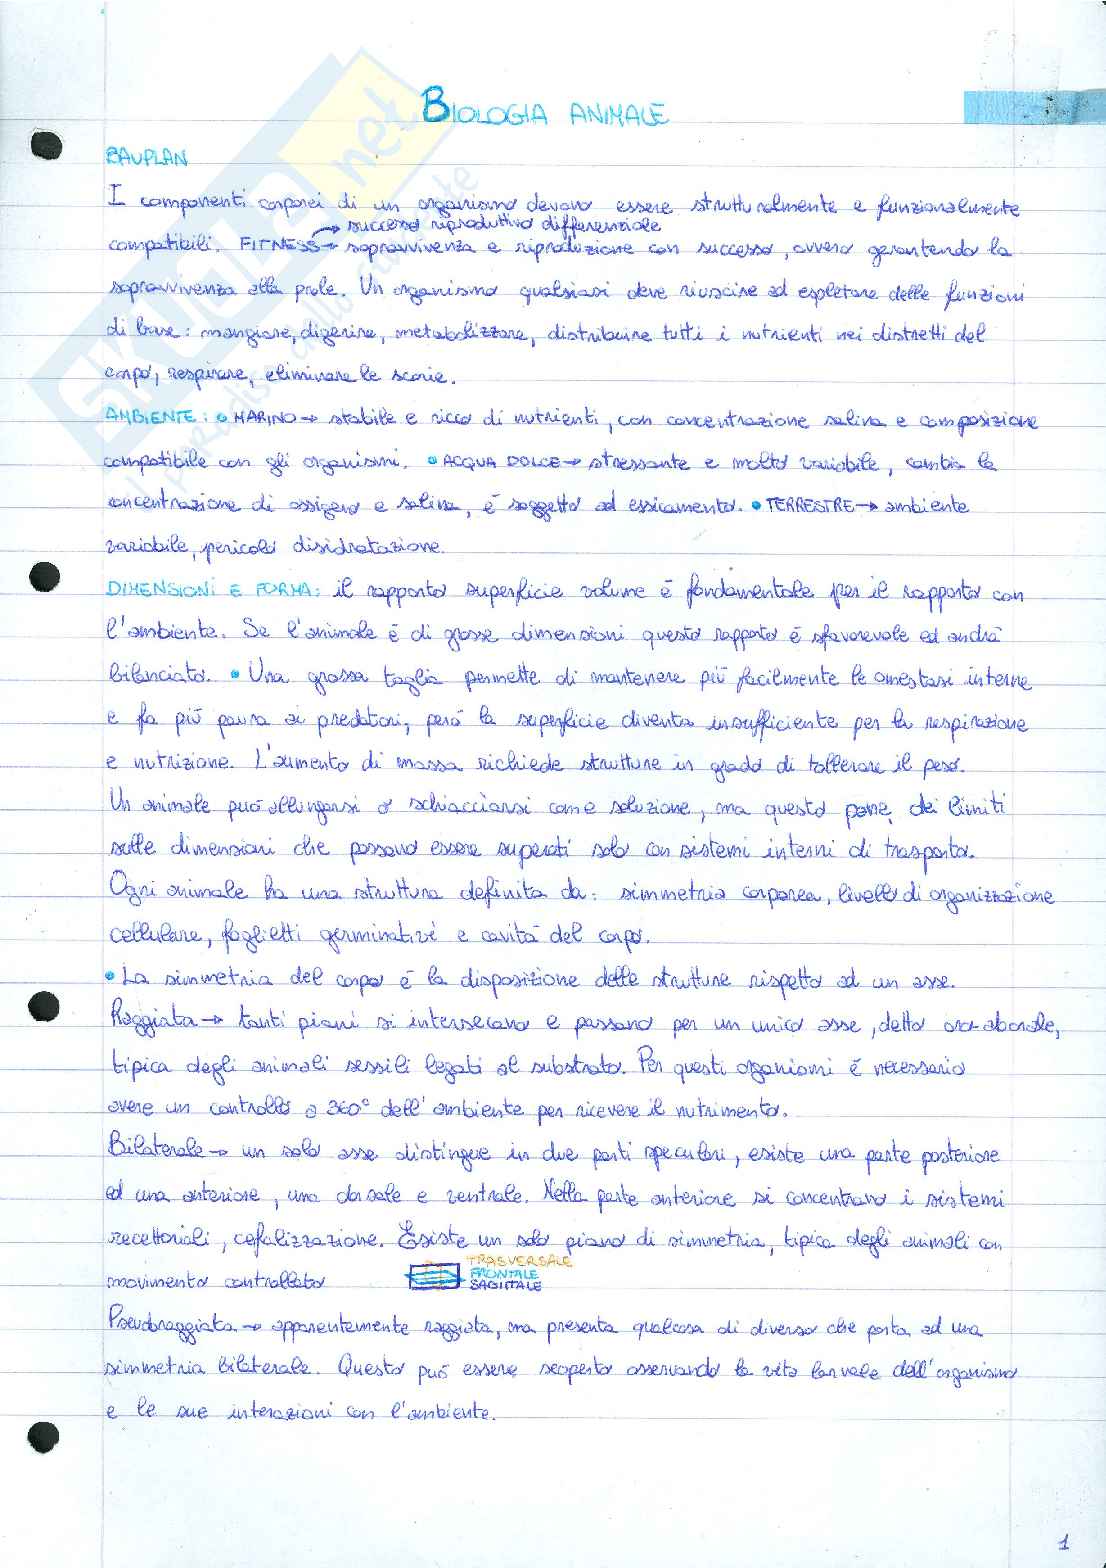 BIOLOGIA ANIMALE
BAUPLAN
I componenti corporei di un organismo devono essere strutturalmente e funzionalmente
→ successo riproduttivo differenziale
compatibili. FITNESS → sopravvivenza e riproduzione con successo, ovvero garantendo la
sopravvivenza alla prole. Un organismo qualsiasi deve riuscire ad espletare delle funzioni
di base: mangiare, digerire, metabolizzare, distribuire tutti i nutrienti nei distretti del
corpo, respirare, eliminare le scorie.
AMBIENTE: • MARINO → stabile e ricco di nutrienti, con concentrazione salina e composizione
compatibile con gli organismi. • ACQUA DOLCE → stressante e molto variabile, cambia la
concentrazione di ossigeno e salina, è soggetto ad essicamento. • TERRESTRE → ambiente
variabile, pericolo disidratazione.
DIMENSIONI E FORMA: il rapporto superficie volume è fondamentale per il rapporto con
l'ambiente. Se l'animale è di grosse dimensioni questo rapporto è sfavorevole ed andrà
bilanciato. • Una grossa taglia permette di mantenere più facilmente le omeostasi interne
e fa più paura ai predatori, però la superficie diventa insufficiente per la respirazione
e nutrizione. L'aumento di massa richiede strutture in grado di tollerare il peso.
Un animale può allungarsi o schiacciarsi come soluzione, ma questo pone dei limiti
sulle dimensioni che possono essere superati solo con sistemi interni di trasporto.
Ogni animale ha una struttura definita da: simmetria corporea, livello di organizzazione
cellulare, foglietti germinativi e cavità del corpo.
• La simmetria del corpo è la disposizione delle strutture rispetto ad un asse.
Raggiata → tanti piani si intersecano e passano per un unico asse, detto oro-aborale,
tipica degli animali sessili legati al substrato. Per questi organismi è necessario
avere un controllo a 360° dell'ambiente per ricevere il nutrimento.
Bilaterale → un solo asse distingue in due parti speculari, esiste una parte posteriore
ed una anteriore, una dorsale e ventrale. Nella parte anteriore si concentrano i sistemi
recettoriali, cefalizzazione. Esiste un solo piano di simmetria, tipica degli animali con
TRASVERSALE
FRONTALE
movimento controllato SAGITTALE
Pseudoraggiata → apparentemente raggiata, ma presenta qualcosa di diverso che porta ad una
simmetria bilaterale. Questo può essere scoperto osservando la vita larvale dell'organismo
e le sue interazioni con l'ambiente.
1
SKUOLA.net
il paradiso dello studente